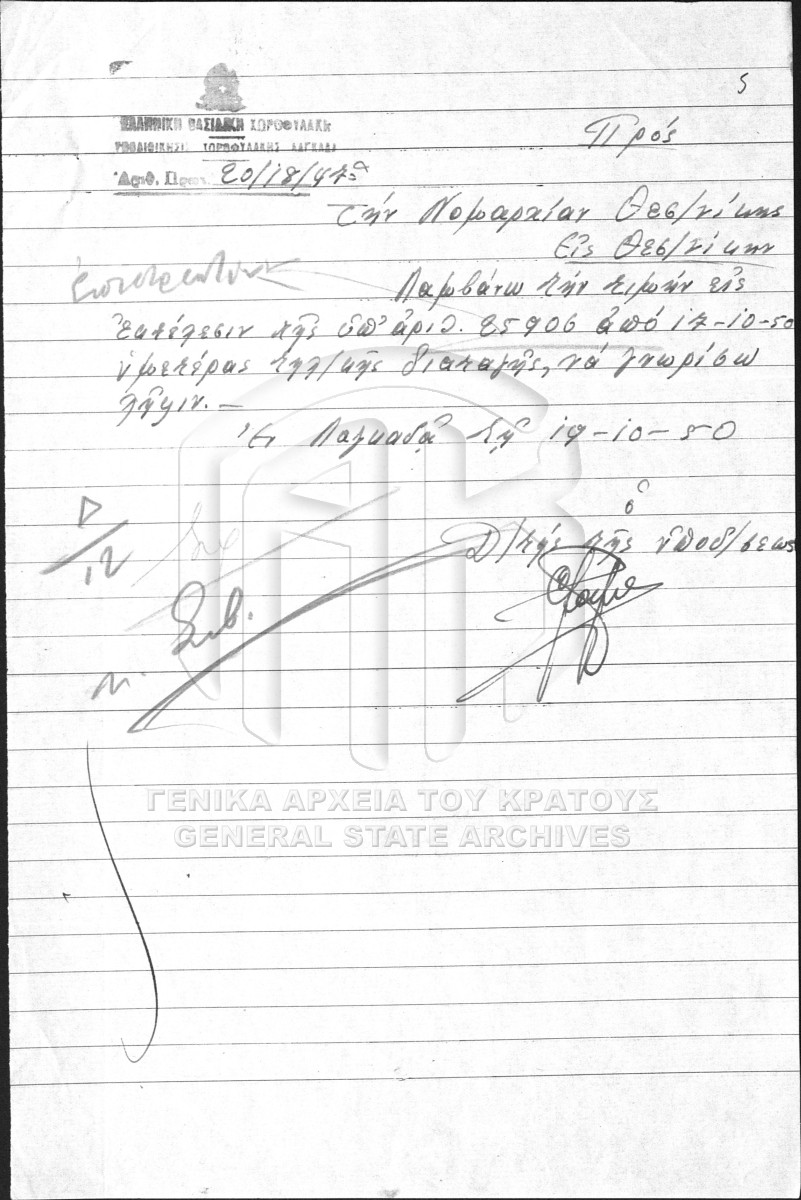 5
ΕΛΛΗΝΙΚΗ ΒΑΣΙΛΙΚΗ ΧΩΡΟΦΥΛΑΚΗ
ΥΠΟΔΙΟΙΚΗΣΙΣ ΧΩΡΟΦΥΛΑΚΗΣ ΛΑΓΚΑΔΑ
Ἀριθ. Πρωτ. 20/18/47α
Πρός
τήν Νομαρχίαν Θεσ/νίκης
Εἰς Θεσ/νίκην
Λαμβάνω τήν τιμήν εἰς
ἐκτέλεσιν τῆς ὑπ' ἀριθ. 25906 ἀπό 17-10-50
ὑμετέρας τηλ/κῆς διαταγῆς, νά γνωρίσω
λῆψιν. —
Ἐν Λαγκαδᾷ τῇ 19-10-50
ὁ
Δ/τής τῆς ὑποδ/σεως
Δ/12
ΓΕΝΙΚΑ ΑΡΧΕΙΑ ΤΟΥ ΚΡΑΤΟΥΣ
GENERAL STATE ARCHIVES